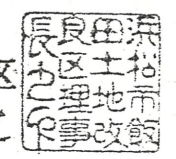 浜松市飯
田土地改
良区理事
長之印